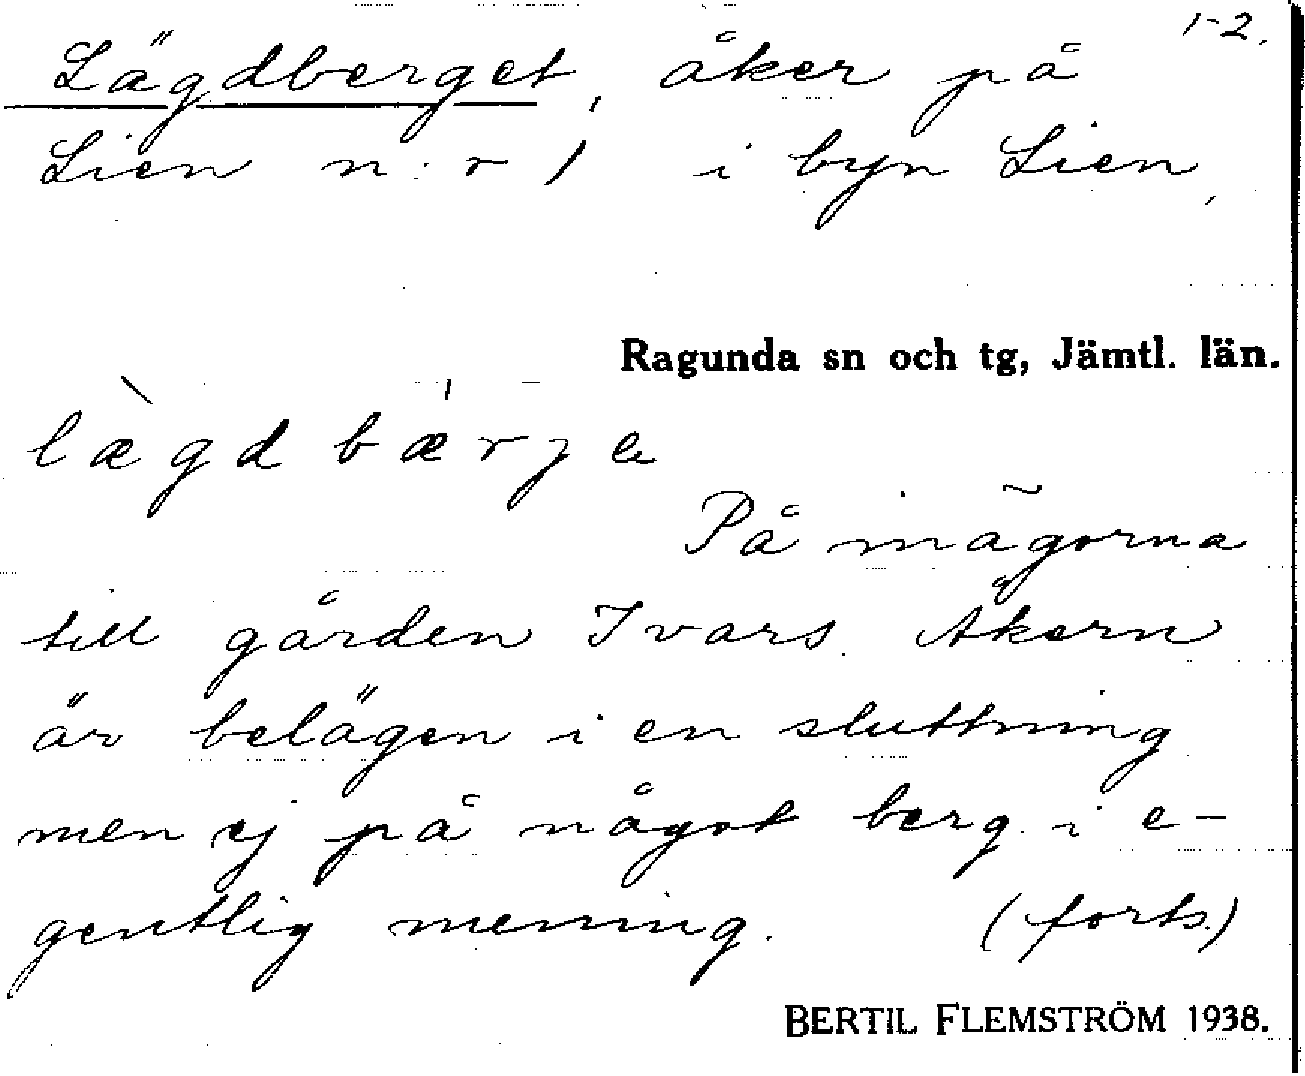 1-2.
Lägdberget, åker på
Lien n:r 1 i byn Lien,
Ragunda sn och tg, Jämtl. län.
læ̀gdbæ̍rɟe
På inägorna
till gården Ivars. Åkern
är belägen i en sluttning
men ej på något berg i e-
gentlig mening. (forts.)
BERTIL FLEMSTRÖM 1938.